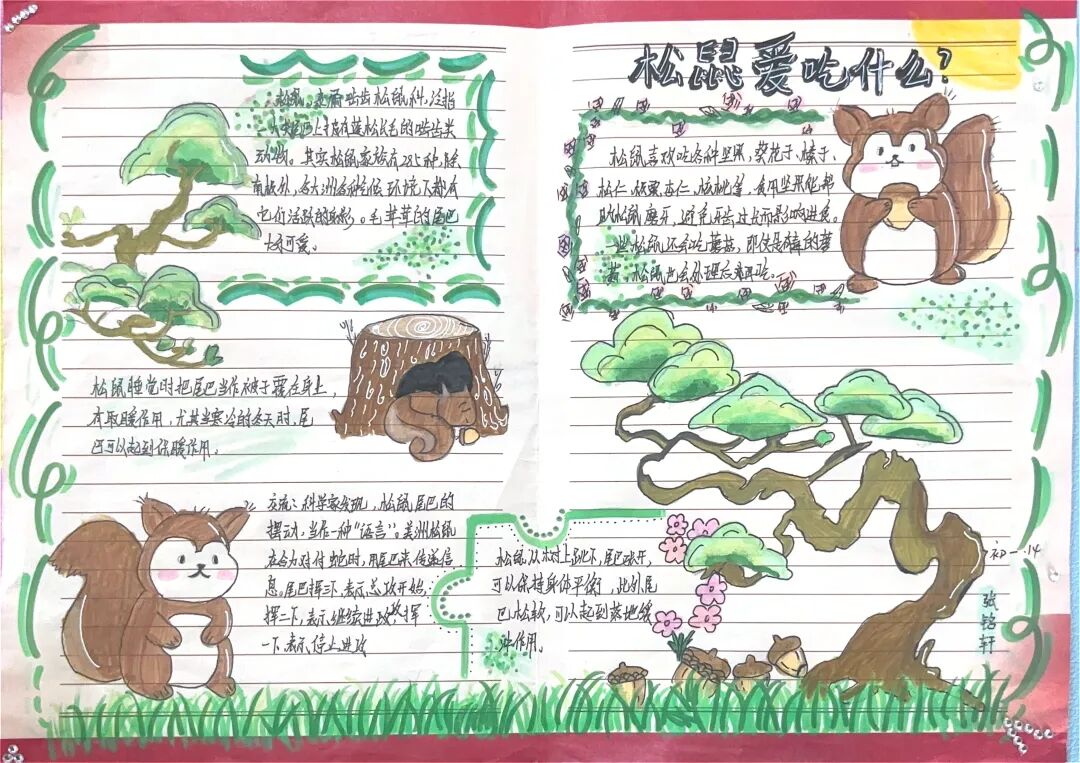 松鼠爱吃什么?
松鼠,是啮齿松鼠科,泛指
一大类尾巴上 有蓬松长毛的啮齿类
动物。其实松鼠家族有285种,除
南极外,各大洲各种 环境下都有
它们活跃的身影。毛茸茸的尾巴
可爱。
松鼠喜欢吃各种坚果,葵花子、榛子、
松仁、 杏仁、核桃等,食用坚果能帮
助松鼠磨牙,避免牙齿过长而影响进食。
一些松鼠还会吃蘑菇,即使是有毒的蘑
菇,松鼠也会处理后再吃。
松鼠睡觉时把尾巴当作被子覆在身上,
有取暖作用,尤其当寒冷的冬天时,尾
巴可以起到保暖作用。
交流:科学家发现,松鼠尾巴的
摆动,当作一种“语言”。美洲松鼠
在合力对付蛇时,用尾巴来传递信
息。尾巴挥三下,表示总攻开始,
挥二下,表示继续进攻,挥
一下,表示停止进攻
松鼠从树上跳下,尾巴张开,
可以保持身体平衡,此外尾
巴松软,可以起到落地缓
冲作用。
初一.14
张铭轩